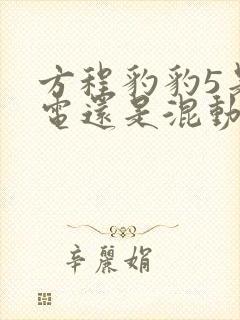 方程豹豹5是
電還是混動
辛麗娟